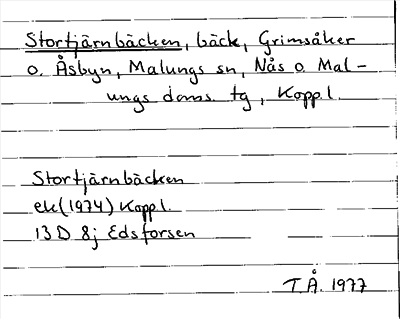 Stortjärnbäcken, bäck, Grimsåker
o. Åsbyn, Malungs sn, Nås o. Mal-
ungs doms. tg, Koppl.
Stortjärnbäcken
ek (1974) Koppl.
13 D 8j Edsforsen
T.Å. 1977